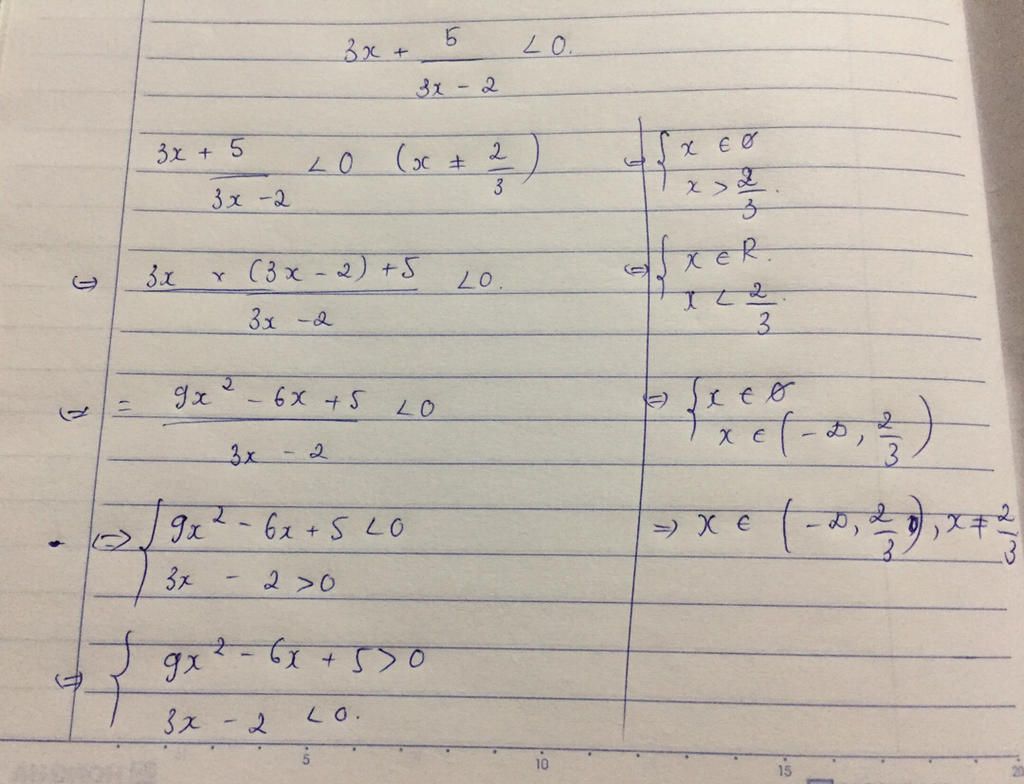 3x + 5/(3x - 2) < 0.
3x + 5/(3x - 2) < 0 (x ≠ 2/3)
⇔ (3x × (3x - 2) + 5)/(3x - 2) < 0.
⇔ = (9x² - 6x + 5)/(3x - 2) < 0
⇔ { 9x² - 6x + 5 < 0
3x - 2 > 0
⇔ { 9x² - 6x + 5 > 0
3x - 2 < 0.
⇔ { x ∈ ∅
x > 2/3.
⇔ { x ∈ R.
x < 2/3.
⇔ { x ∈ ∅
x ∈ (-∞, 2/3)
⇒ x ∈ (-∞, 2/3), x ≠ 2/3
5 10 15 20